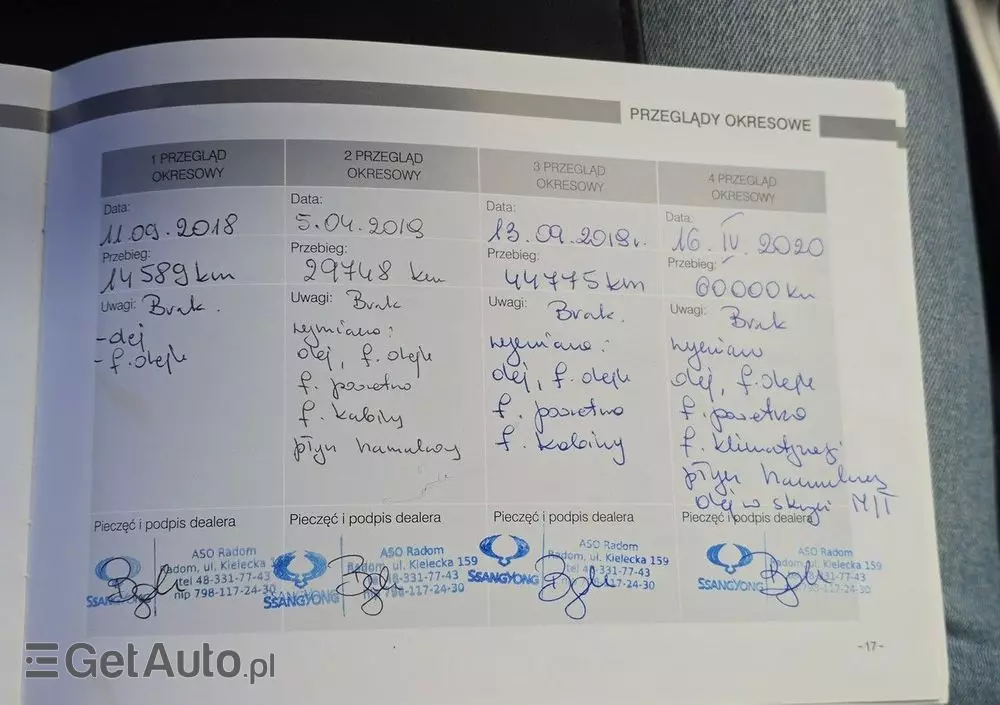 PRZEGLĄDY OKRESOWE
1 PRZEGLĄD
OKRESOWY
Data:
11.09.2018
Przebieg:
14589 km
Uwagi: Brak.
- olej
- f. oleju
Pieczęć i podpis dealera
SSANGYONG
ASO Radom
Radom, ul. Kielecka
tel 48-331-77-43
nip 798-117-24-30
2 PRZEGLĄD
OKRESOWY
Data:
5.04.2019
Przebieg:
29748 km
Uwagi: Brak
wymiano:
olej, f. oleju
f. powietrza
f. kabiny
płyn hamulcowy
Pieczęć i podpis dealera
SSANGYONG
ASO Radom
Radom, ul. Kielecka 159
48-331-77-43
nip 798-117-24-30
3 PRZEGLĄD
OKRESOWY
Data:
13.09.2019r.
Przebieg:
44775 km
Uwagi:
Brak.
wymiano:
olej, f. oleju
f. powietrza
f. kabiny
Pieczęć i podpis dealera
SSANGYONG
ASO Radom
Radom, ul. Kielecka 159
tel 48-331-77-43
117-24-30
4 PRZEGLĄD
OKRESOWY
Data:
16.IV.2020
Przebieg:
60000 km
Uwagi:
Brak
wymiano
olej, f. oleju
f. powietrza
f. klimatyzacji
płyn hamulcowy
olej w skrzyni M/T
Pieczęć i podpis dealera
SSANGYONG
ASO Radom
Radom, ul. Kielecka 159
48-331-77-43
798-117-24-30
-17-
GetAuto.pl